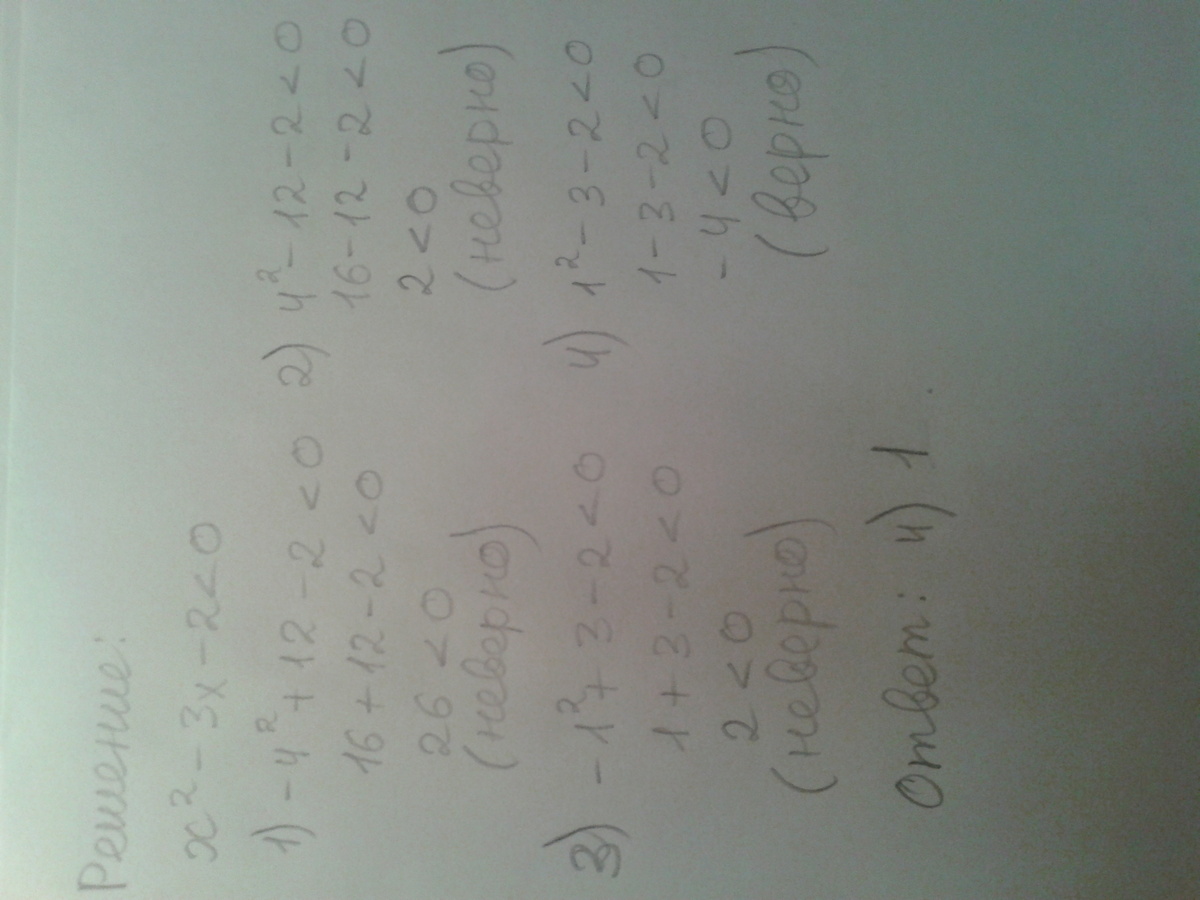 Решение:
x² - 3x - 2 < 0
1) -4² + 12 - 2 < 0
16 + 12 - 2 < 0
26 < 0
(неверно)
2) 4² - 12 - 2 < 0
16 - 12 - 2 < 0
2 < 0
(неверно)
3) -1² + 3 - 2 < 0
1 + 3 - 2 < 0
2 < 0
(неверно)
4) 1² - 3 - 2 < 0
1 - 3 - 2 < 0
-4 < 0
(верно)
Ответ: 4) 1.